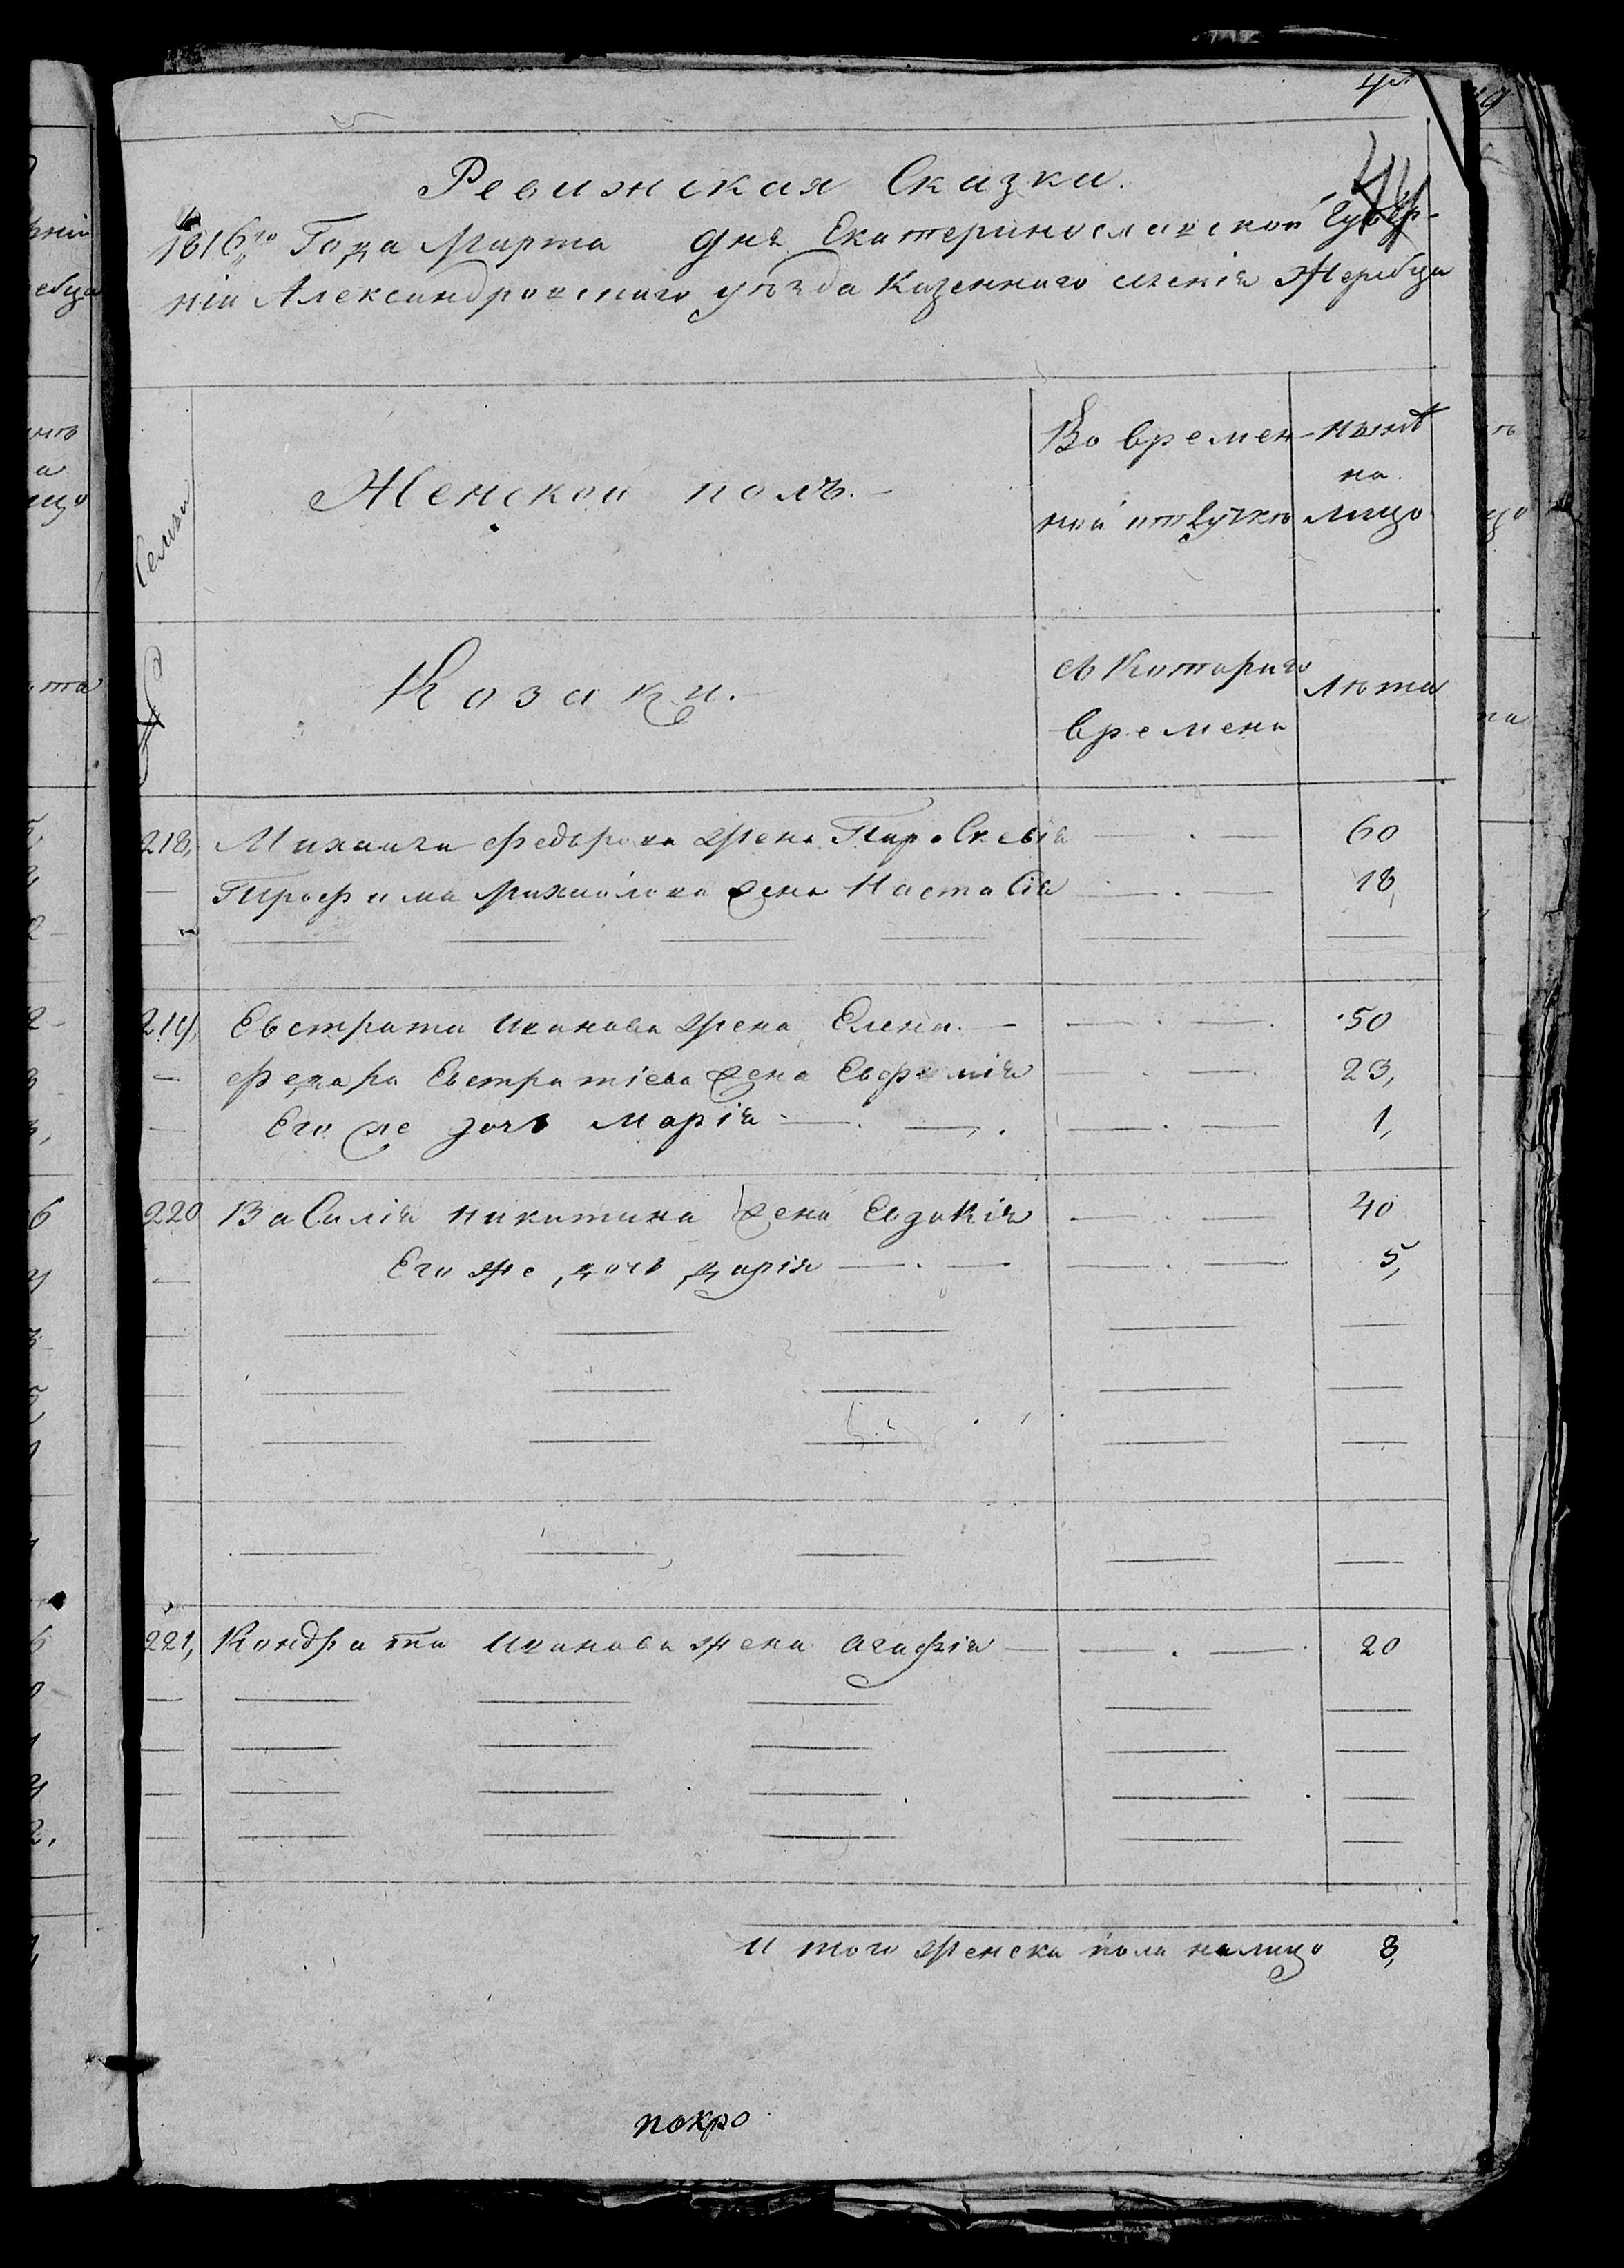 Ревижская Сказка.
1816го Года Марта дня Екатеринославской Губер-
ніи Александровскаго уѣзда Казеннаго сѣленія Жеребца
Семьи
Женской полъ.
Во времен-
ной отлучкѣ
нынѣ
на
лицо
№
Козаки.
съ Котораго
времена
Лѣта
218, Михаила Федорова жена Параскевія — . — 60
— Трофима Михайлова жена Настасія — . — 18,
219, Евстрата Иванова жена Елена. — — . — 50
— Федора Евстратіева жена Евфимія — . — 23,
— Его же дочь Марія — . — . — . — 1,
220 Василія Никитина жена Евдокія — . — 40
— Его же дочь Дарія — . — — . — 5,
221, Кондрата Иванова жена Агафія — — . — 20
И того женска пола налицо 8,
покро